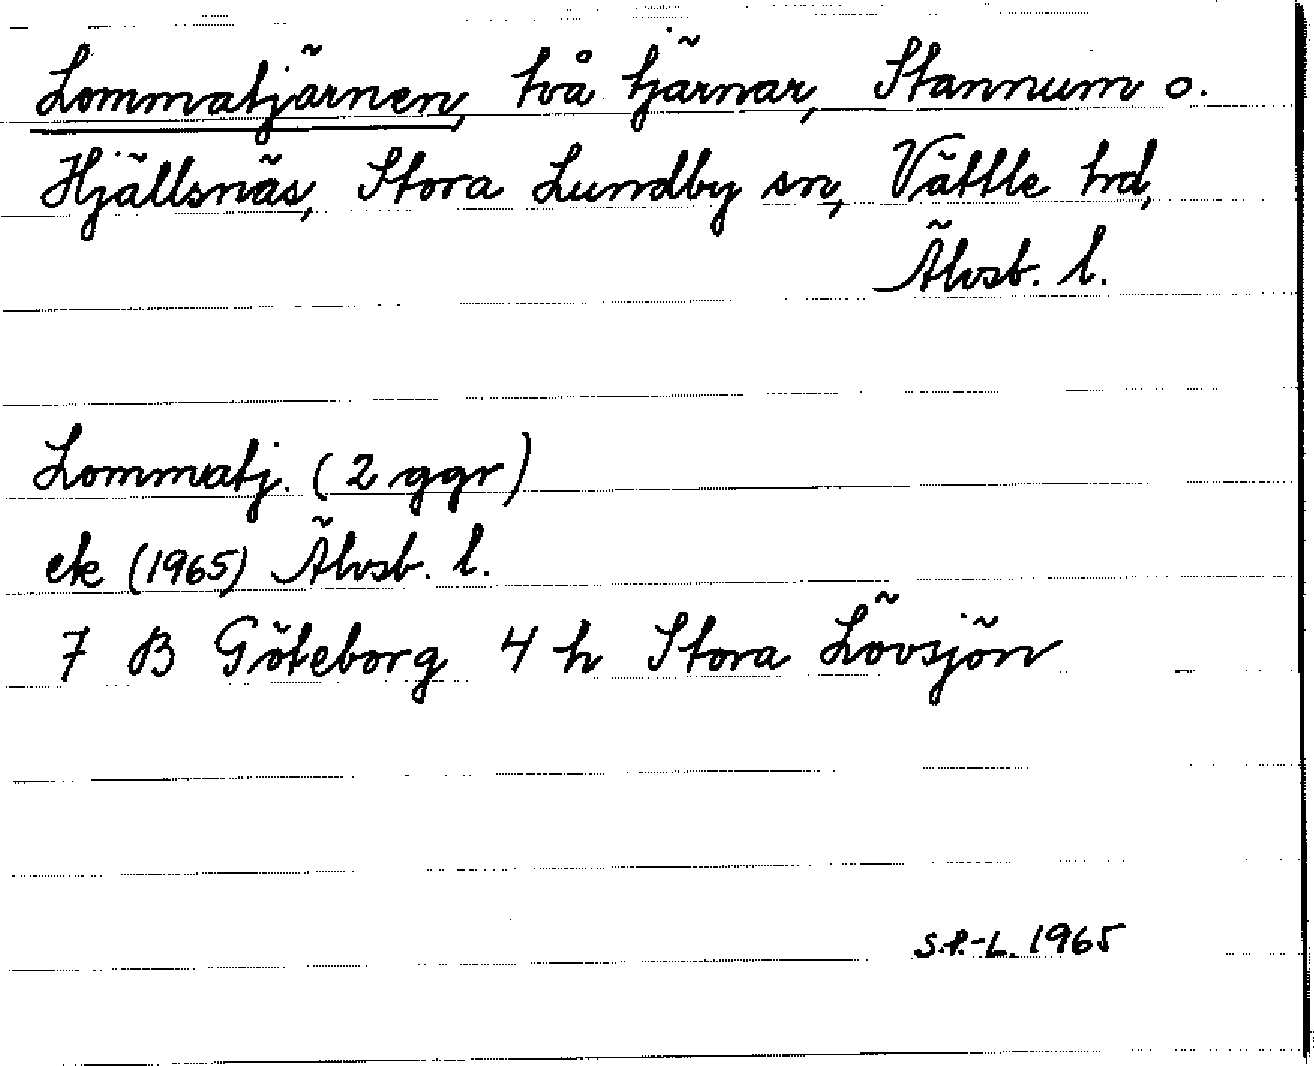 Lommatjärnen, två tjärnar, Stannum o.
Hjällsnäs, Stora Lundby sn, Vättle hd,
Älvsb. l.
Lommatj. (2 ggr)
ek (1965) Älvsb. l.
7 B Göteborg 4 h Stora Lövsjön
S.P.-L. 1965